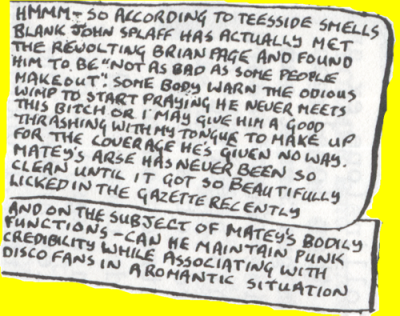 HMMM - SO ACCORDING TO TEESSIDE SMELLS
BLANK JOHN SPLAFF HAS ACTUALLY MET
THE REVOLTING BRIAN PAGE AND FOUND
HIM TO BE "NOT AS BAD AS SOME PEOPLE
MAKEOUT". SOME BODY WARN THE ODIOUS
WIMP TO START PRAYING HE NEVER MEETS
THIS BITCH OR I MAY GIVE HIM A GOOD
THRASHING WITH MY TONGUE TO MAKE UP
FOR THE COVERAGE HE'S GIVEN NO WAY.
MATEY'S ARSE HAS NEVER BEEN SO
CLEAN UNTIL IT GOT SO BEAUTIFULLY
LICKED IN THE GAZETTE RECENTLY
AND ON THE SUBJECT OF MATEY'S BODILY
FUNCTIONS - CAN HE MAINTAIN PUNK
CREDIBILITY WHILE ASSOCIATING WITH
DISCO FANS IN A ROMANTIC SITUATION